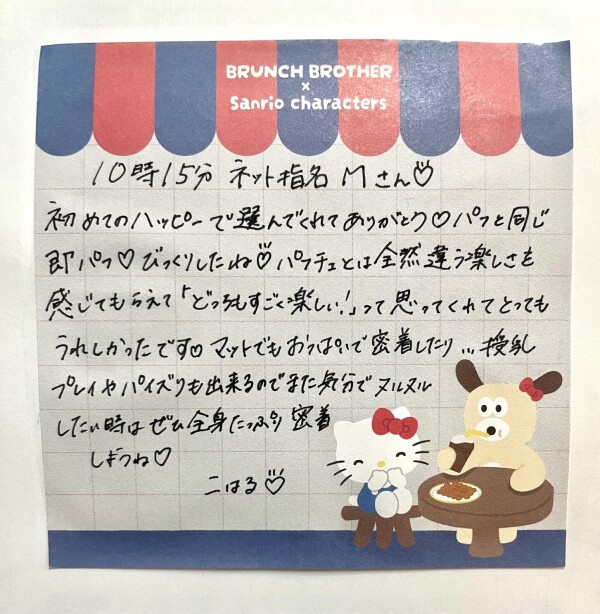 BRUNCH BROTHER
×
Sanrio characters
10時15分 ネット指名 Mさん♡
初めてのハッピーで選んでくれてありがとう♡パフと同じ
即パフ♡びっくりしたね♡パフチェとは全然違う楽しさを
感じてもらえて「どっちもすごく楽しい!」って思ってくれてとっても
うれしかったです♡マットでもおっぱいで密着したり...授乳
プレイやパイズリも出来るのでまた気分でヌルヌル
したい時はぜひ全身たっぷり密着
しようね♡
こはる♡